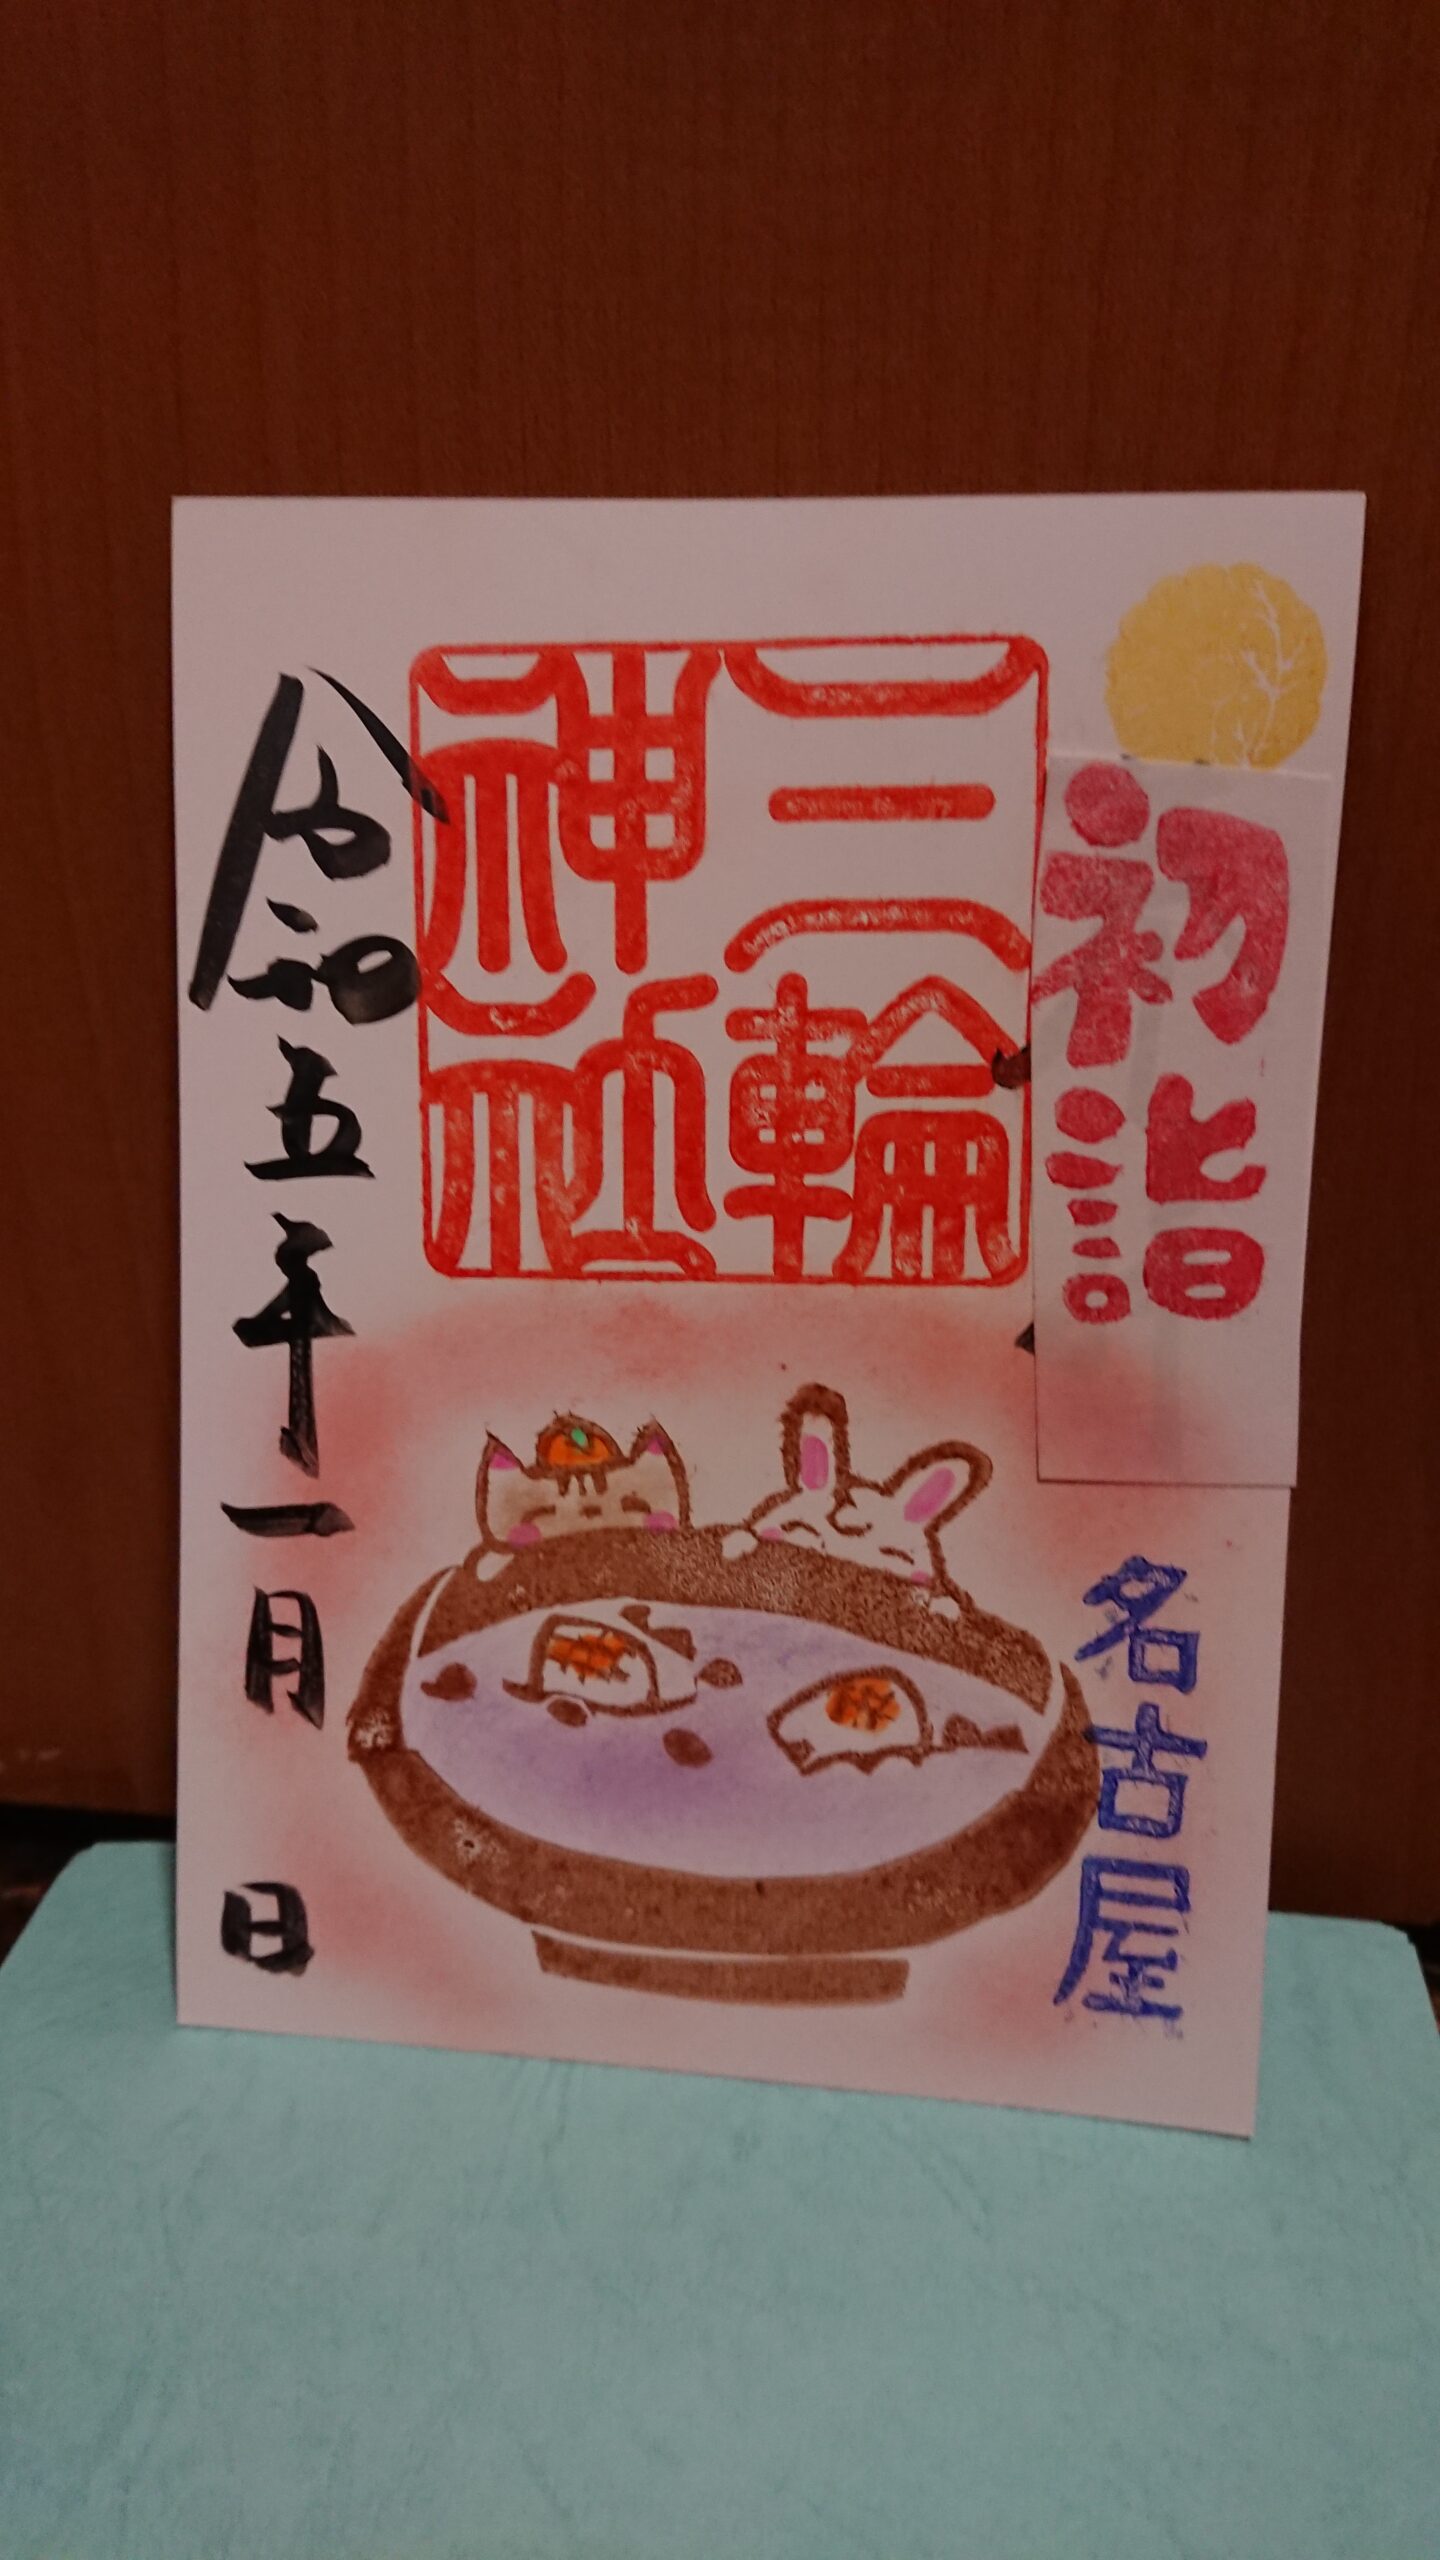 初詣
名古屋
三輪
神社
令和五年一月 日